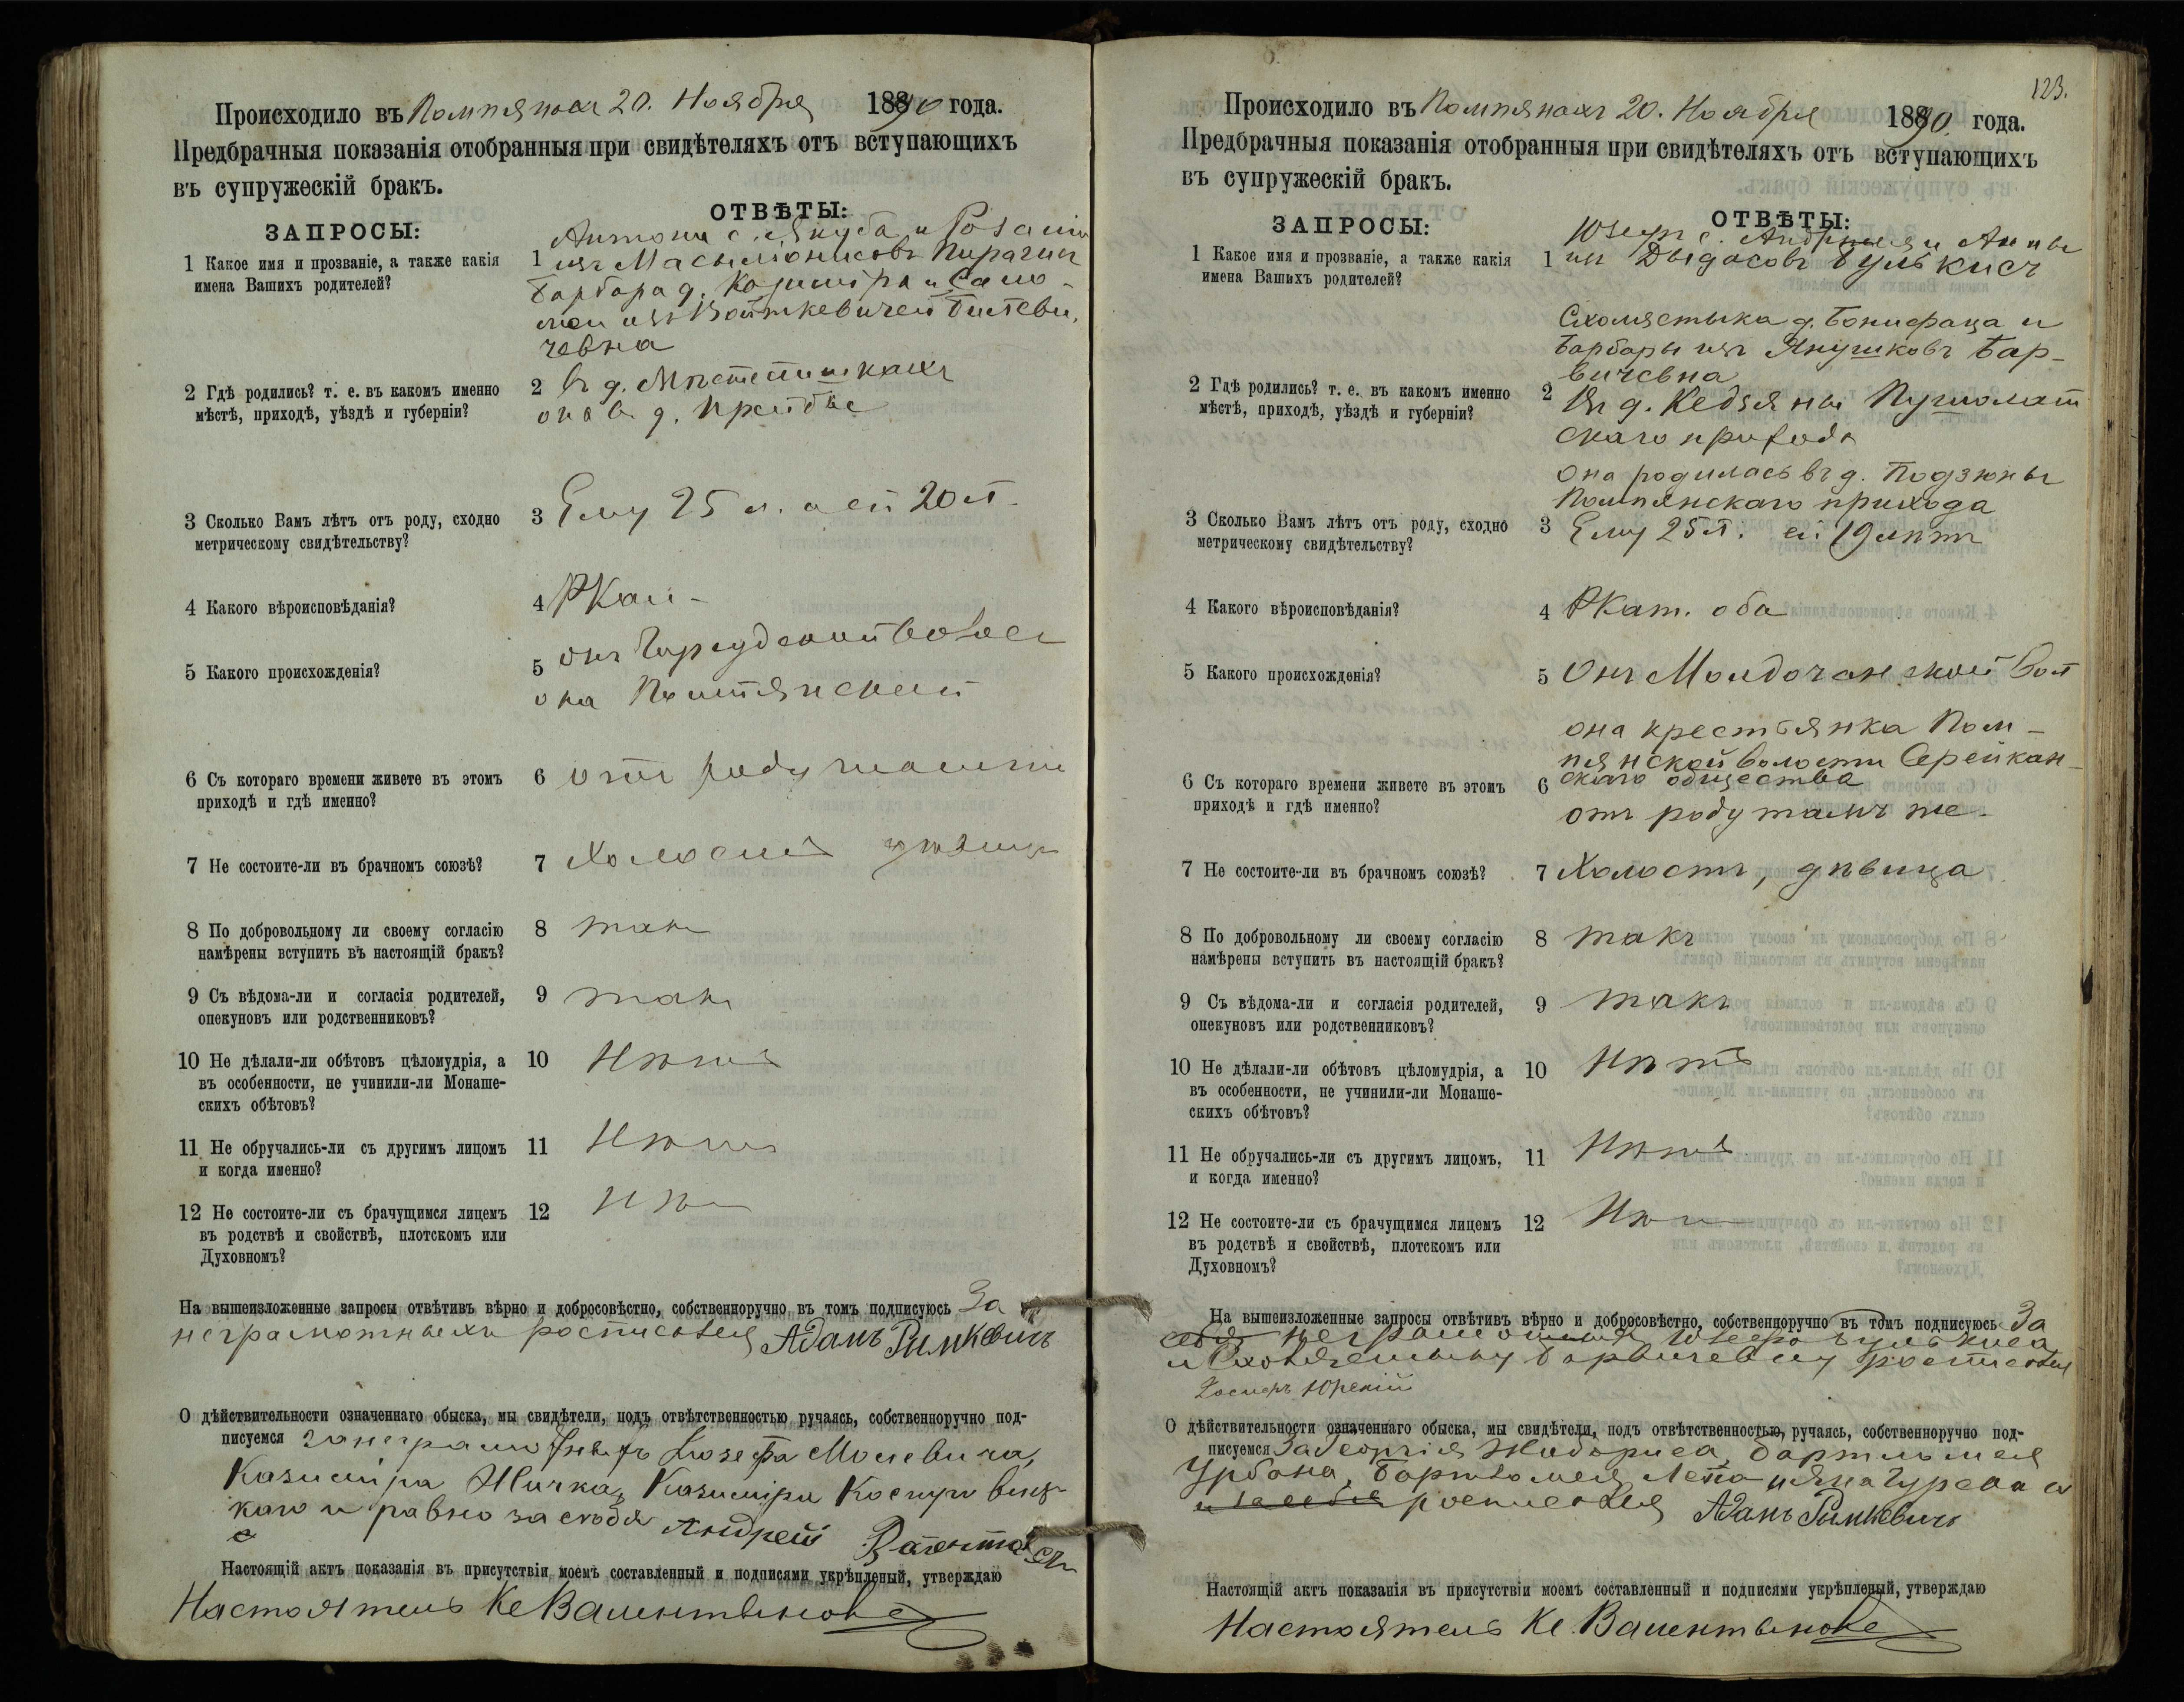 Происходило въ Помпянахъ 20. Ноября 1890 года.
Предбрачныя показанія отобранныя при свидѣтеляхъ отъ вступающихъ
въ супружескій бракъ.
ЗАПРОСЫ:
ОТВѢТЫ:
1 Какое имя и прозваніе, а также какія
имена Вашихъ родителей?
1 Антонъ с. Якуба и
изъ
Барбара д. Казиміра и Сало-
меи изъ Войткевичей
чевна
2 Гдѣ родились? т. е. въ какомъ именно
мѣстѣ, приходѣ, уѣздѣ и губерніи?
2 въ д.
она въ д.
3 Сколько Вамъ лѣтъ отъ роду, сходно
метрическому свидѣтельству?
3 Ему 25 л. а ей 20 л.
4 Какого вѣроисповѣданія?
4 РКат
5 Какого происхожденія?
5 онъ
она Помпянской
6 Съ котораго времени живете въ этомъ
приходѣ и гдѣ именно?
6 отъ роду
7 Не состоите-ли въ брачномъ союзѣ?
7 Холостъ дѣвица
8 По добровольному ли своему согласію
намѣрены вступить въ настоящій бракъ?
8 такъ
9 Съ вѣдома-ли и согласія родителей,
опекуновъ или родственниковъ?
9 такъ
10 Не дѣлали-ли обѣтовъ цѣломудрія, а
въ особенности, не учинили-ли Монаше-
скихъ обѣтовъ?
10 Нѣтъ
11 Не обручались-ли съ другимъ лицомъ
и когда именно?
11 Нѣтъ
12 Не состоите-ли съ брачущимся лицемъ
въ родствѣ и свойствѣ, плотскомъ или
Духовномъ?
12 Нѣтъ
На вышеизложенные запросы отвѣтивъ вѣрно и добросовѣстно, собственноручно въ томъ подписуюсь За
неграмотныхъ росписался Адамъ Римкевичъ
О дѣйствительности означеннаго обыска, мы свидѣтели, подъ отвѣтственностью ручаясь, собственноручно под-
писуемся за неграмотныхъ Іозефа
Казиміра Казиміра
каго и равно за себя Андрей
Настоящій актъ показанія въ присутствіи моемъ составленный и подписями укрѣпленый, утверждаю
Настоятель Кс Валентынович
123.
Происходило въ Помпянахъ 20. Ноября 1890. года.
Предбрачныя показанія отобранныя при свидѣтеляхъ отъ вступающихъ
въ супружескій бракъ.
ЗАПРОСЫ:
ОТВѢТЫ:
1 Какое имя и прозваніе, а также какія
имена Вашихъ родителей?
1 Юзефъ с. Андрея и Анны
изъ Дыдасовъ Булькисъ
Схолястыка д. Бонифаца и
Барбары изъ Янушковъ Бар-
вичевна
2 Гдѣ родились? т. е. въ какомъ именно
мѣстѣ, приходѣ, уѣздѣ и губерніи?
2 Въ д. Кедзяны Пушолат
скаго прихода
она родилась въ д. Подзюны
Помпянскаго прихода
3 Сколько Вамъ лѣтъ отъ роду, сходно
метрическому свидѣтельству?
3 Ему 25 л. ей 19 лѣтъ
4 Какого вѣроисповѣданія?
4 РКат. оба
5 Какого происхожденія?
5 Онъ вол
она крестьянка Пом-
пянской волости Серейкан-
скаго общества
6 Съ котораго времени живете въ этомъ
приходѣ и гдѣ именно?
6 отъ роду тамъ же.
7 Не состоите-ли въ брачномъ союзѣ?
7 Холостъ, дѣвица
8 По добровольному ли своему согласію
намѣрены вступить въ настоящій бракъ?
8 такъ
9 Съ вѣдома-ли и согласія родителей,
опекуновъ или родственниковъ?
9 такъ
10 Не дѣлали-ли обѣтовъ цѣломудрія, а
въ особенности, не учинили-ли Монаше-
скихъ обѣтовъ?
10 Нѣтъ
11 Не обручались-ли съ другимъ лицомъ,
и когда именно?
11 Нѣтъ
12 Не состоите-ли съ брачущимся лицемъ
въ родствѣ и свойствѣ, плотскомъ или
Духовномъ?
12 Нѣтъ
На вышеизложенные запросы отвѣтивъ вѣрно и добросовѣстно, собственноручно въ томъ подписуюсь За
Юзефа Булькиса
и Схолястыку Барвичевну росписался
О дѣйствительности означеннаго обыска, мы свидѣтели, подъ отвѣтственностью, ручаясь, собственноручно под-
писуемся За Георгія Бартломея
Урбана, Бартломея
и за себя росписался Адамъ Римкевичъ
Настоящій актъ показанія въ присутствіи моемъ составленный и подписями укрѣпленый, утверждаю
Настоятель Кс. Валентынович